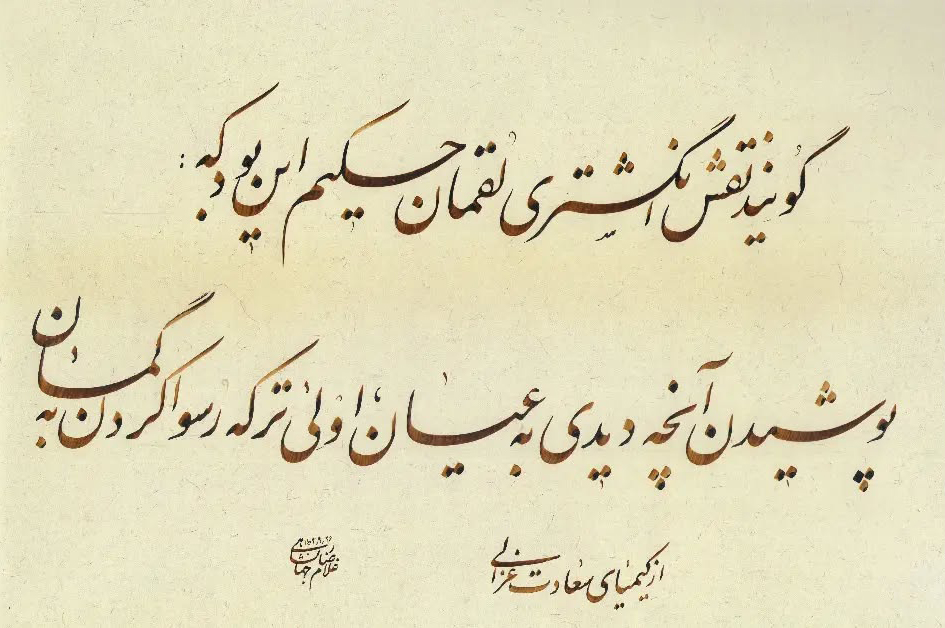 گویند نقش انگشتری لقمان حکیم این بود که :
پوشیدن آنچه دیدی به عیان، اولیٰ‌تر که رسوا کردن به گمان
از کیمیای سعادت غزالی
غلامرضا